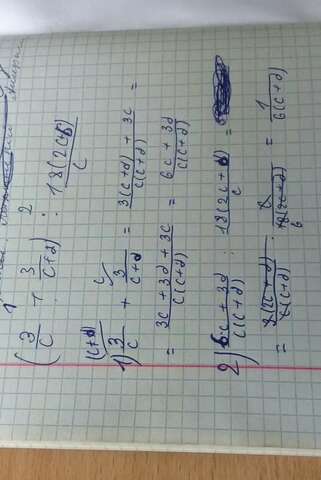 1 2
(3/c + 3/(c+d)) : 18(2c+d)/c
1) (c+d) 3/c + c 3/(c+d) = (3(c+d) + 3c)/(c(c+d)) =
= (3c + 3d + 3c)/(c(c+d)) = (6c + 3d)/(c(c+d))
2) (6c + 3d)/(c(c+d)) : 18(2c + d)/c =
= 3(2c+d)/(c(c+d)) · c/(18(2c+d)) 6 = 1/(6(c+d))